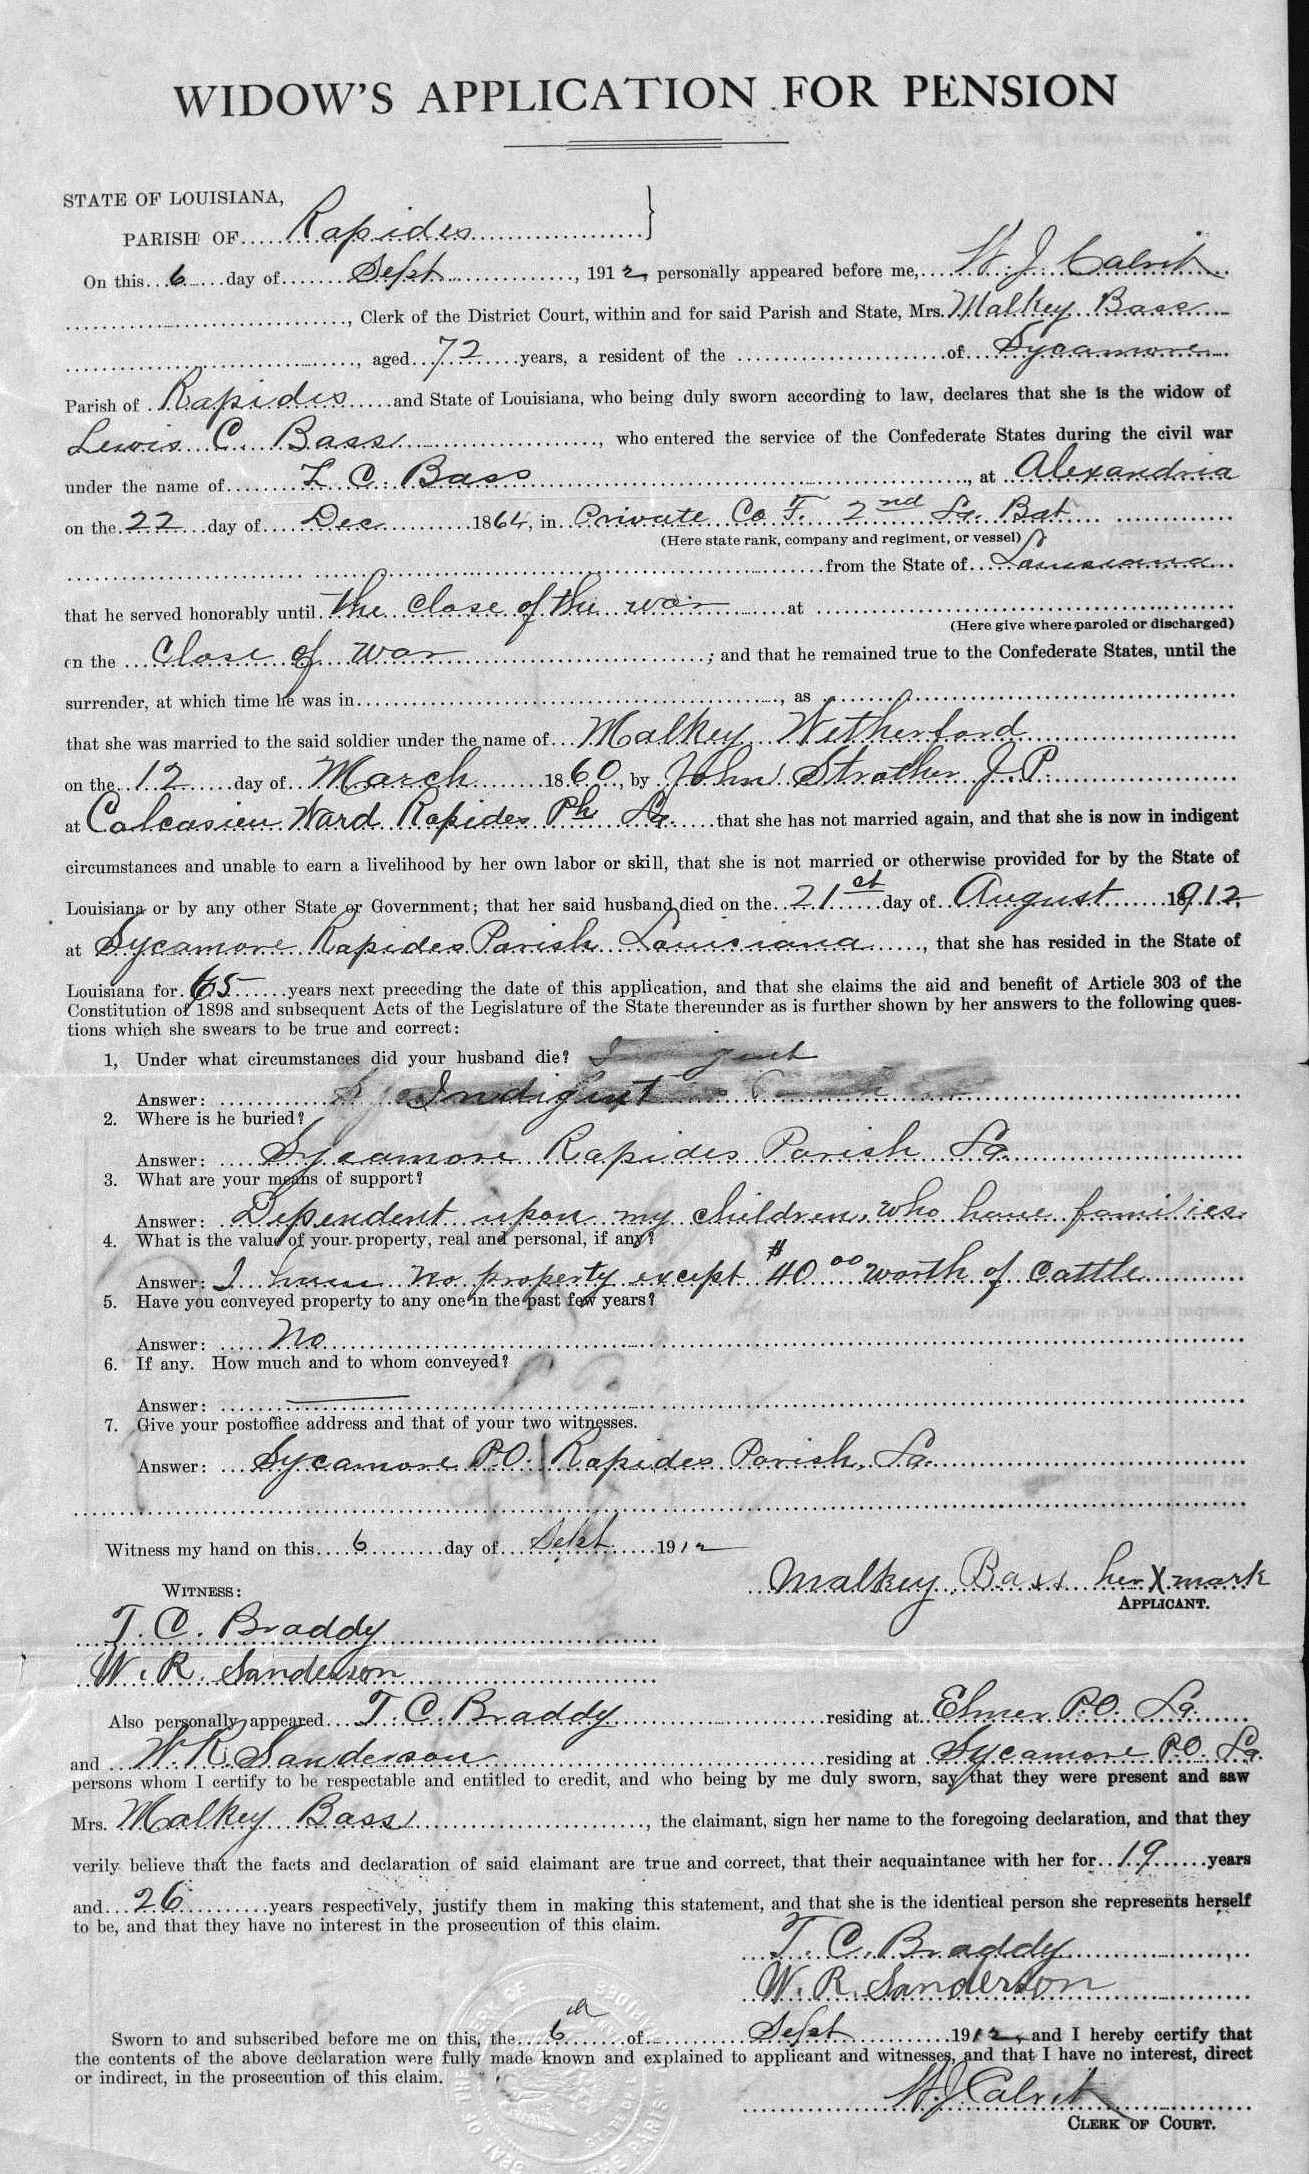 WIDOW'S APPLICATION FOR PENSION
STATE OF LOUISIANA,
PARISH OF Rapides
On this 6 day of Sept, 1912, personally appeared before me, W. J. Calvit
, Clerk of the District Court, within and for said Parish and State, Mrs. Malkey Bass
, aged 72 years, a resident of the of Sycamore
Parish of Rapides and State of Louisiana, who being duly sworn according to law, declares that she is the widow of
Lewis C. Bass, who entered the service of the Confederate States during the civil war
under the name of L C. Bass, at Alexandria
on the 22 day of Dec 1864, in Private Co F. 2nd La. Bat
(Here state rank, company and regiment, or vessel)
from the State of Louisiana
that he served honorably until the close of the war at
(Here give where paroled or discharged)
on the Close of war; and that he remained true to the Confederate States, until the
surrender, at which time he was in, as
that she was married to the said soldier under the name of Malkey Wetherford
on the 12 day of March 1860, by John Strother J. P.
at Calcasieu Ward Rapides Ph La. that she has not married again, and that she is now in indigent
circumstances and unable to earn a livelihood by her own labor or skill, that she is not married or otherwise provided for by the State of
Louisiana or by any other State or Government; that her said husband died on the 21st day of August 1912,
at Sycamore Rapides Parish Louisiana, that she has resided in the State of
Louisiana for 65 years next preceding the date of this application, and that she claims the aid and benefit of Article 303 of the
Constitution of 1898 and subsequent Acts of the Legislature of the State thereunder as is further shown by her answers to the following ques-
tions which she swears to be true and correct:
1, Under what circumstances did your husband die?
Answer: Indigent
2. Where is he buried?
Answer: Sycamore Rapides Parish La.
3. What are your means of support?
Answer: Dependent upon my children, who have families.
4. What is the value of your property, real and personal, if any?
Answer: I have no property except $40.00 worth of cattle
5. Have you conveyed property to any one in the past few years?
Answer: No
6. If any. How much and to whom conveyed?
Answer:
7. Give your postoffice address and that of your two witnesses.
Answer: Sycamore P.O. Rapides Parish, La.
Witness my hand on this 6 day of Sept 1912
Malkey Bass her X mark
WITNESS:
APPLICANT.
T. C. Braddy
W. R. Sanderson
Also personally appeared T. C. Braddy residing at Elmer P.O. La.
and W. R. Sanderson residing at Sycamore P.O. La
persons whom I certify to be respectable and entitled to credit, and who being by me duly sworn, say that they were present and saw
Mrs. Malkey Bass, the claimant, sign her name to the foregoing declaration, and that they
verily believe that the facts and declaration of said claimant are true and correct, that their acquaintance with her for 19 years
and 26 years respectively, justify them in making this statement, and that she is the identical person she represents herself
to be, and that they have no interest in the prosecution of this claim.
T. C. Braddy
W. R. Sanderson
Sworn to and subscribed before me on this, the 6th of Sept 1912, and I hereby certify that
the contents of the above declaration were fully made known and explained to applicant and witnesses, and that I have no interest, direct
or indirect, in the prosecution of this claim.
W. J. Calvit
CLERK OF COURT.